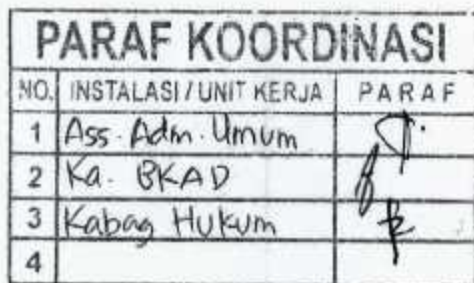 PARAF KOORDINASI
NO. INSTALASI / UNIT KERJA PARAF
1 Ass. Adm. Umum
2 Ka. BKAD
3 Kabag Hukum
4